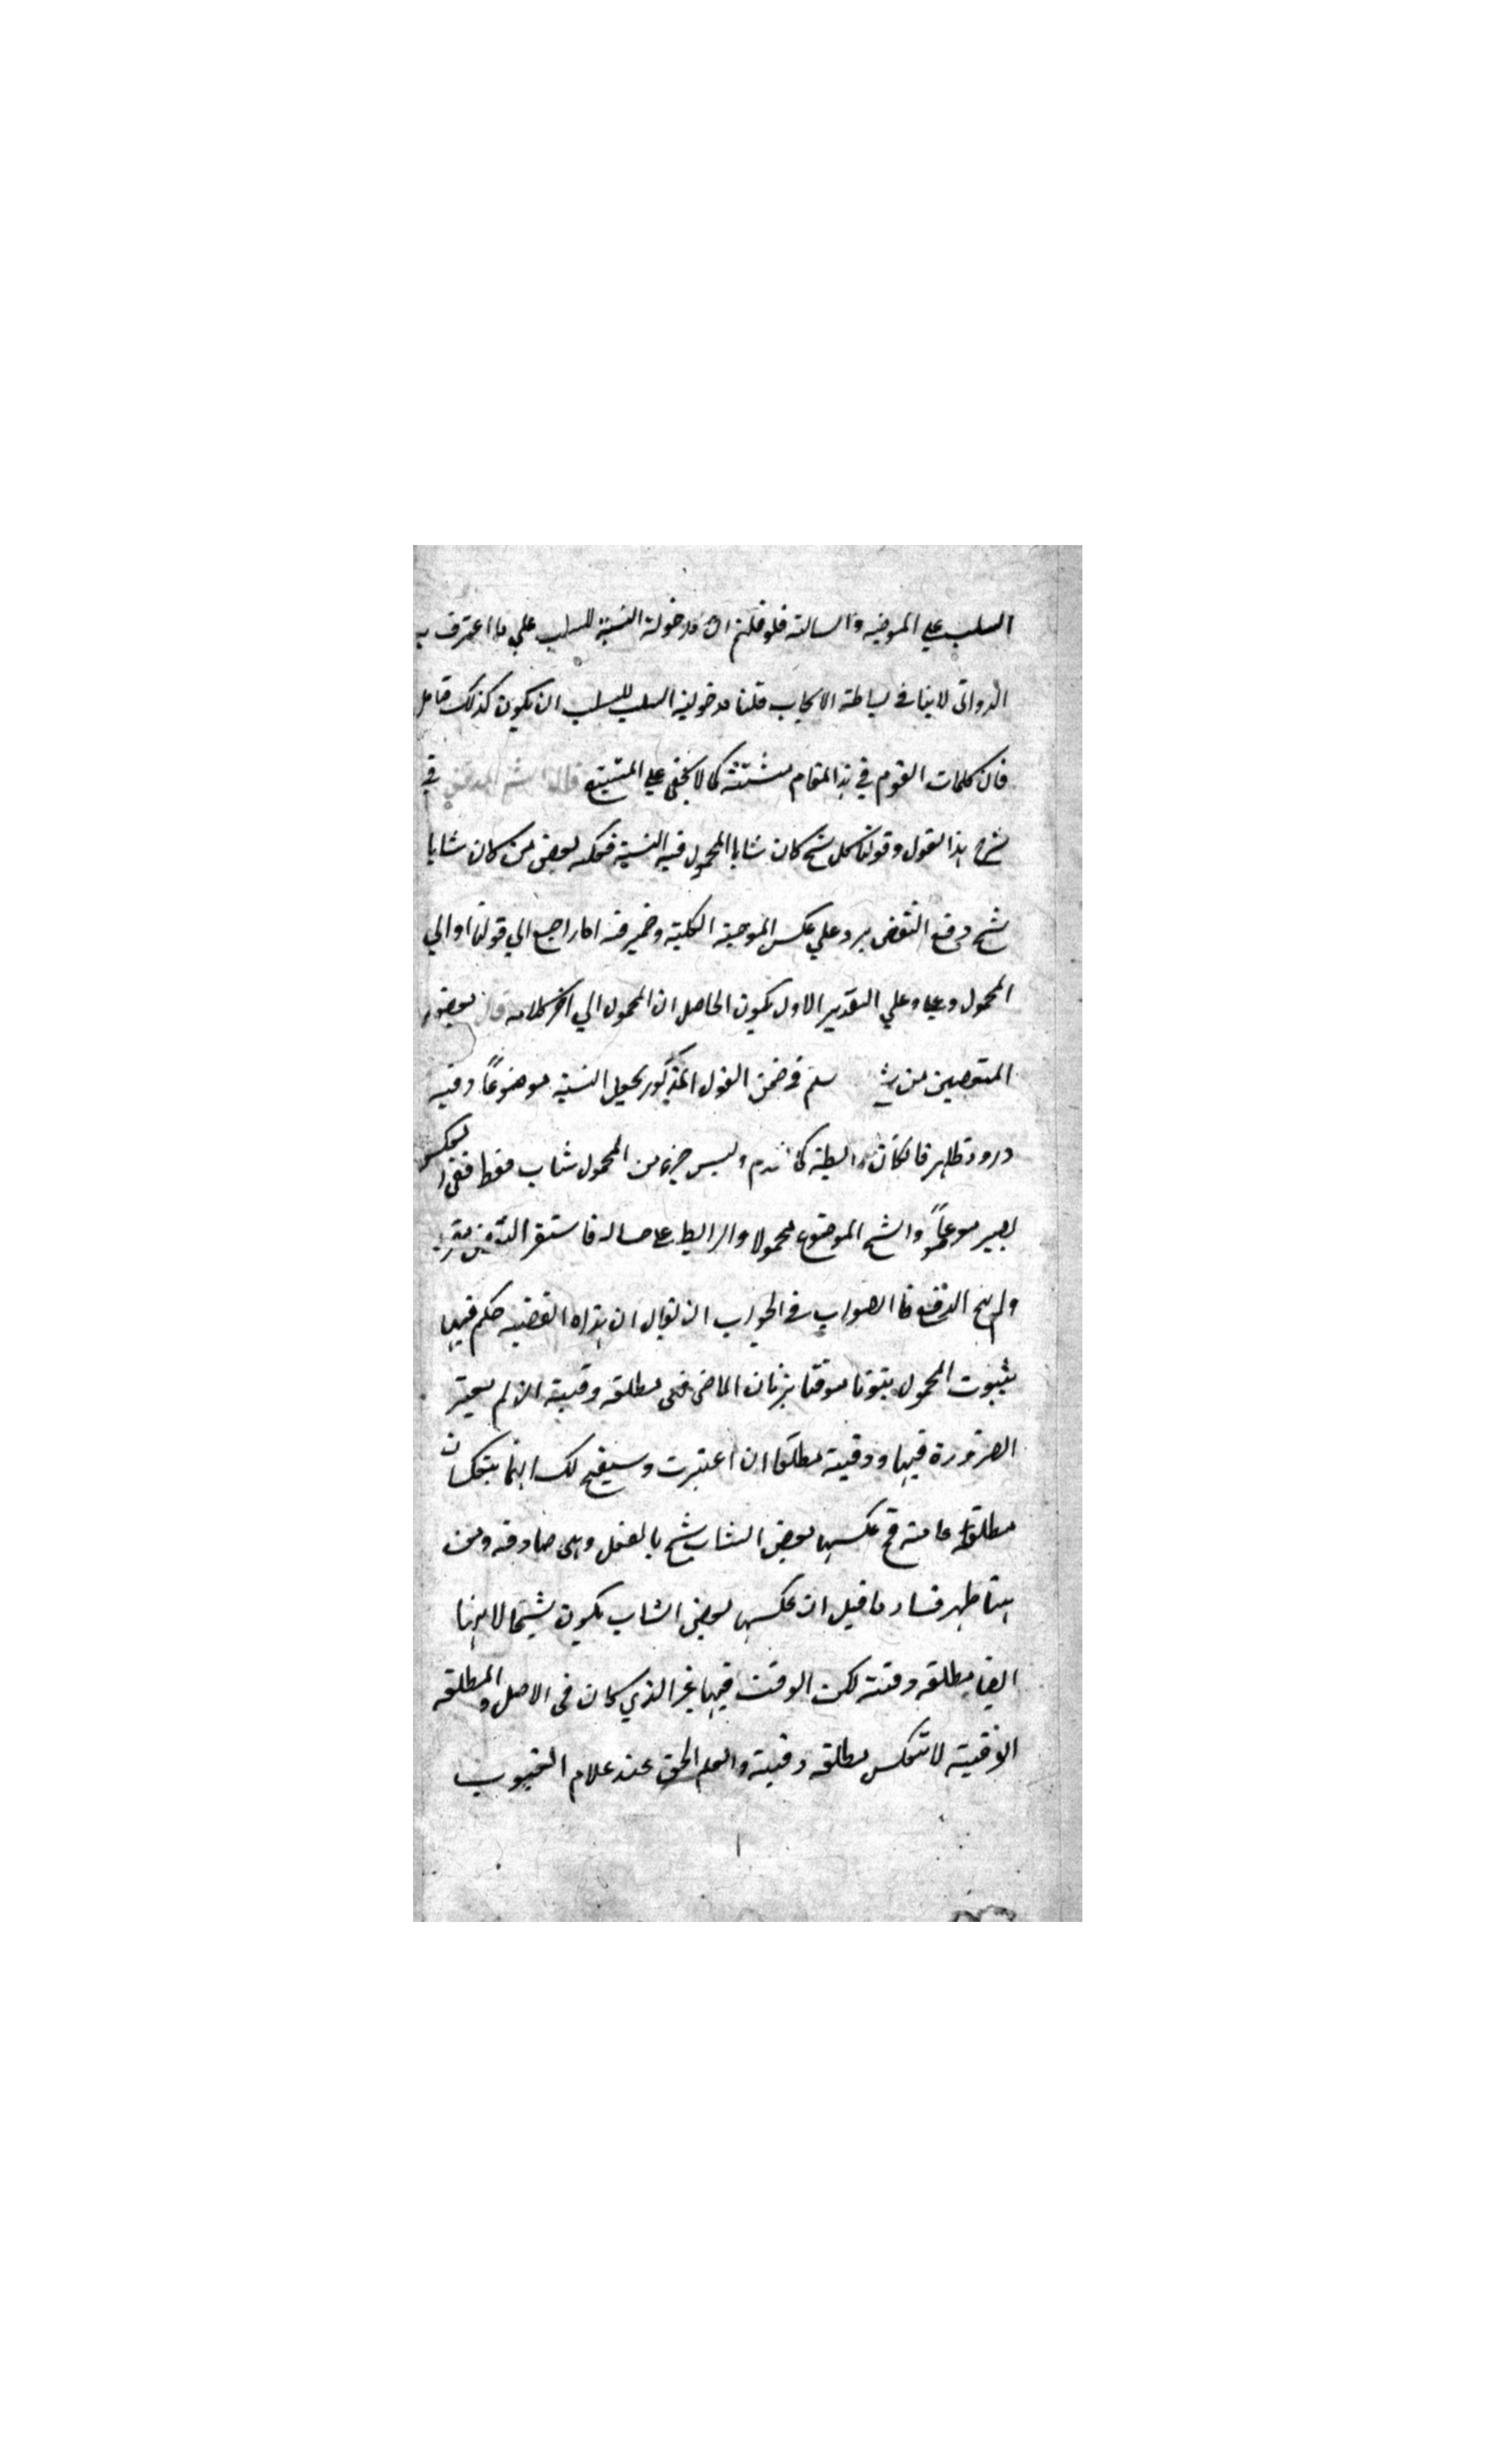 السلب علي الموضيه والسالته فلو قلتم ان مدخولة النسبة للسلب علي ما اعترف به
الدواني لا ينافي بساطة الايجاب قلنا مدخولية السلب للسلب ان يكون كذلك فتامل
فان كلمات القوم في هذا المقام مشتتة كما لا يخفى علي المتتبع قال الشرح المدقق في
شرح هذا القول وقولنا كل شيخ كان شابا المحمول فيه النسبة فعكسه بعض من كان شابا
شيخ دفع النقض يرد علي عكس الموجبة الكلية وضمير فيه اما راجع الي قولنا او الي
المحمول وعلي التقدير الاول يكون الحاصل ان المحمول الي اخر كلامه قال بعض
المتعصبين من سلم في ضمن القول المذكور يجعل النسبة موضوعاً وفيه
ورود ظاهر فان كان رابطة كما تقدم وليس جزء من المحمول شاب فقط ففي العكس
يصير موضوعاً والشيخ الموضوع محمولا والرابط علي حاله فاستقر النقض
ولم الدفع فا الصواب في الجواب ان يقال ان هذه القضية حكم فيها
بثبوت المحمول ثبوتا موقتا بزمان الماضي فهي مطلقه وقتية ان لم يعتبر
الضرورة فيها ووقتية مطلقا ان اعتبرت وسيفتح لك انهما ينعكسان
مطلقة عامة فح عكسها بعض الشاب شيخ بالفعل وهي صادقه ومن
هنا ظهر فساد ما قيل ان عكسها بعض الشاب يكون شيخا لا نها
ايضا مطلقه وقتية لكن الوقت فيها غير الذي كان في الاصل والمطلقه
الوقتية لا تنعكس مطلقه وقتية والعلم الحق عند علام الغيوب